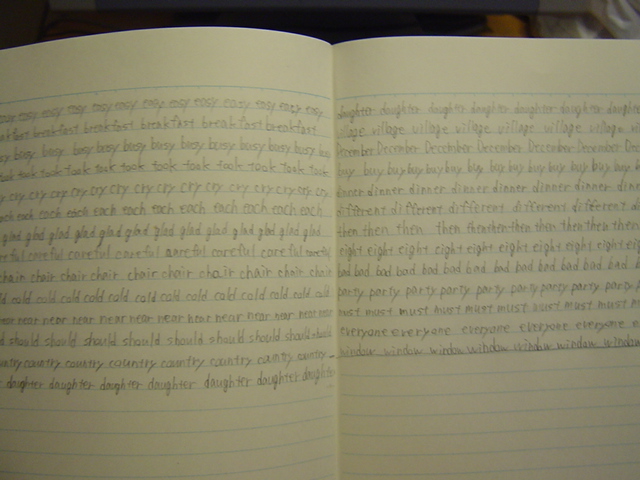 easy easy easy easy easy easy easy easy easy easy easy
breakfast breakfast breakfast breakfast breakfast
busy busy busy busy busy busy busy busy busy busy
took took took took took took took took took took
cry cry cry cry cry cry cry cry cry cry cry cry
each each each each each each each each each each
glad glad glad glad glad glad glad glad glad glad glad
careful careful careful careful careful careful
chair chair chair chair chair chair chair chair chair
cold cold cold cold cold cold cold cold cold cold cold
near near near near near near near near near near near
should should should should should should should
country country country country country country country
daughter daughter daughter daughter daughter daughter
daughter daughter daughter daughter daughter daughter daughter
village village village village village village
December December December December December December
buy buy buy buy buy buy buy buy buy buy buy buy
dinner dinner dinner dinner dinner dinner
different different different different different
then then then then then then then then then then
eight eight eight eight eight eight eight eight
bad bad bad bad bad bad bad bad bad bad bad
party party party party party party party party
must must must must must must must must must
everyone everyone everyone everyone everyone
window window window window window window window